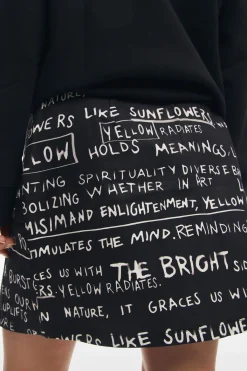 NATURE,
OWERS LIKE SUNFLOWERS, W
YELLOW RADIATES
LOW HOLDS MEANINGS, L
NTING SPIRITUALITY DIVERSE B
BOLIZING WHETHER IN ART
MISIM AND ENLIGHTENMENT, YELLOW
TIMULATES THE MIND. REMINDING
BURST CES US WITH THE BRIGHT S
RS. YELLOW RADIATES.
S OUR W
UPLIFTS N IN NATURE, IT GRACES US WI
OWERS LIKE SUNFLOWERS